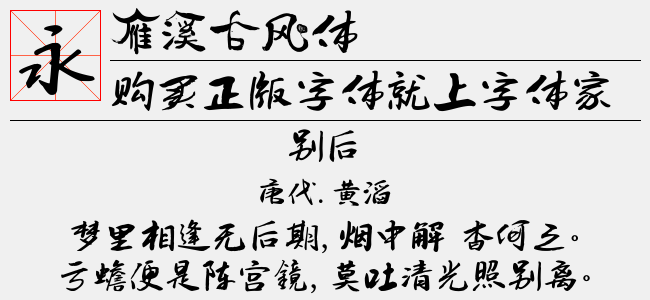 永
雁溪古风体
购买正版字体就上字体家
别后
唐代.黄滔
梦里相逢无后期,烟中解 杳何之。
亏蟾便是陈宫鏡,莫吐清光照别离。